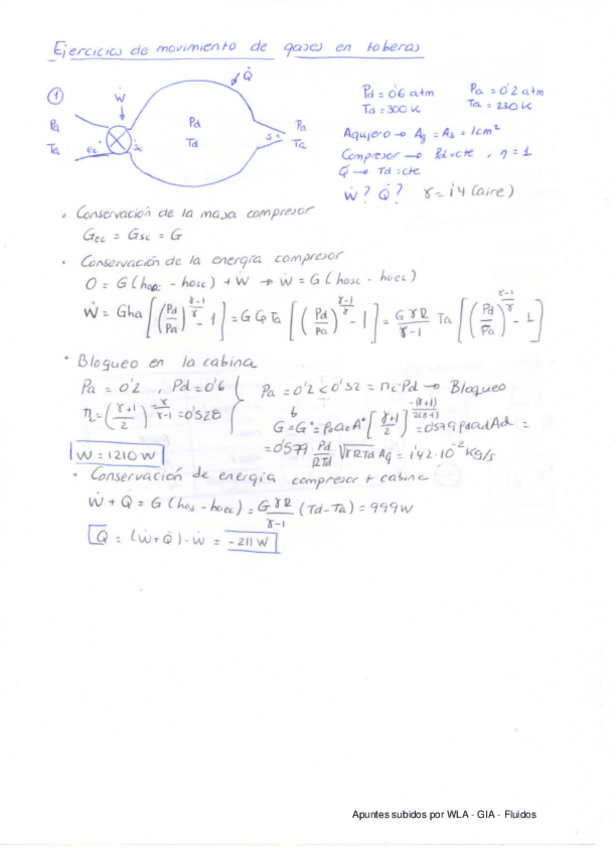 Ejercicios de movimiento de gases en toberas
1
Ẇ
Q̇
Pa
Ta
ec
sc
Pd
Td
s
Pa
Ta
Pd = 0'6 atm Pa = 0'2 atm
Td = 300 K Ta = 230 K
Agujero → Ag = As = 1cm²
Compresor → Pd = cte , η = 1
Q̇ → Td = cte
Ẇ? Q̇? γ = 1'4 (aire)
• Conservación de la masa compresor
Gec = Gsc = G
• Conservación de la energía compresor
0 = G(hoec - hosc) + Ẇ → Ẇ = G(hosc - hoec)
Ẇ = Gha [(Pd/Pa)^((γ-1)/γ) - 1] = G Cp Ta [(Pd/Pa)^((γ-1)/γ) - 1] = GγR/(γ-1) Ta [(Pd/Pa)^((γ-1)/γ) - 1]
• Bloqueo en la cabina
Pa = 0'2 , Pd = 0'6 Pa = 0'2 < 0'32 = ncPd → Bloqueo
η = ((γ+1)/2)^(-γ/(γ-1)) = 0'528 G = G* = ρoaoA* [(γ+1)/2]^(-(γ+1)/(2(γ-1))) = 0'579 ρdadAd =
= 0'579 Pd/(RTd) √(γRTd) Ag = 1'42·10⁻² Kg/s
Ẇ = 1210 W
• Conservación de energía compresor + cabina
Ẇ + Q̇ = G(hos - hoec) = G γR/(γ-1) (Td - Ta) = 999 W
Q̇ = (Ẇ + Q̇) - Ẇ = -211 W
Apuntes subidos por WLA - GIA - Fluidos